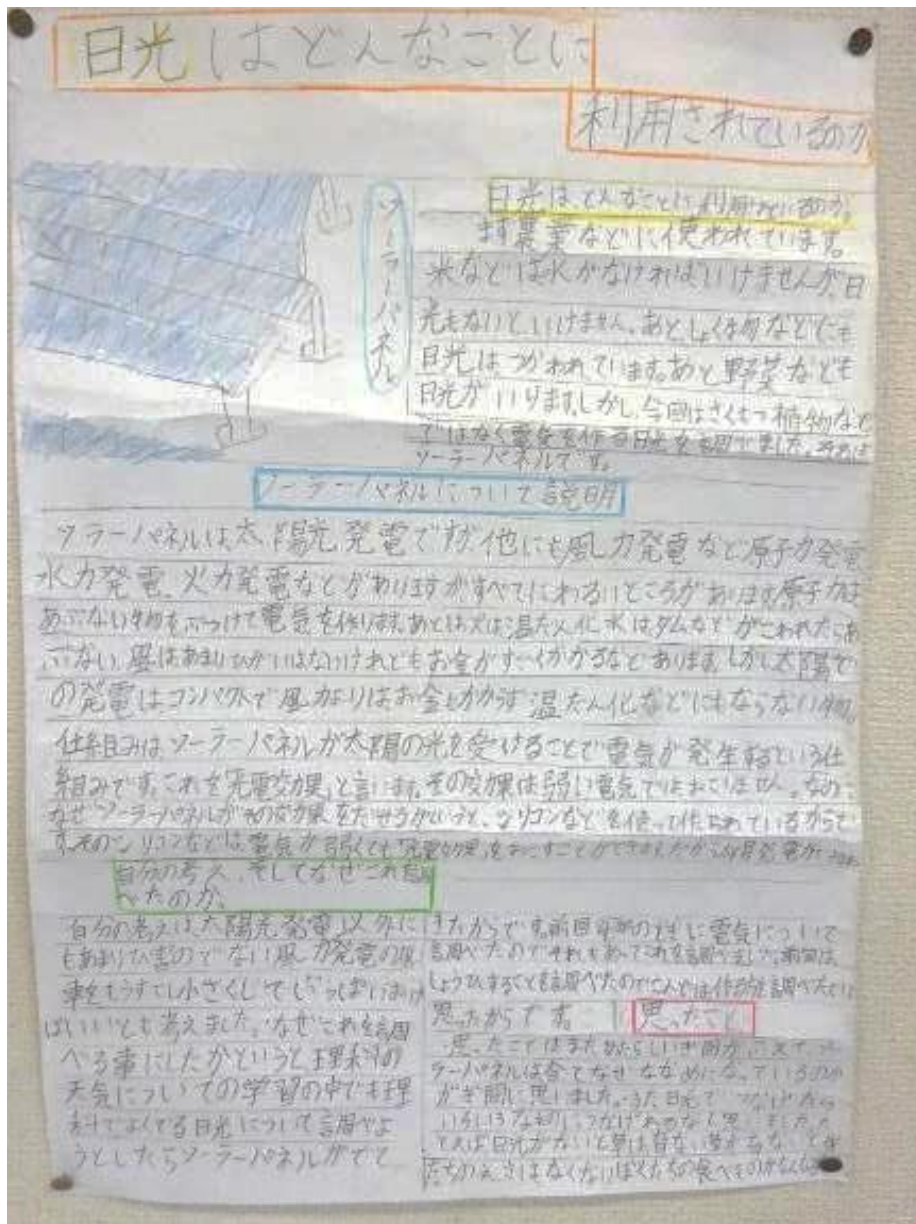 日光はどんなことに
利用されているのか
ソーラーパネル
日光はどんなことに利用されているのか。
まず農業などに使われています。
米などは水がなければいけませんが、日
光もないといけません。あとしょく物などにも
日光はつかわれています。あと野菜なども
日光がいります。しかし、今回はさくもつ植物など
ではなく電気を作る日光を調べました。それは
ソーラーパネルです。
ソーラーパネルについて説明
ソーラーパネルは太陽光発電ですが他にも風力発電など原子力発電
水力発電、火力発電などがありますがすべてにわるいところがあります。原子力は
あぶない物をぶつけて電気を作ります。あとは火は温だん化水はダムなどがこわれたらあ
ぶない。風はあまりひがいはないけれどもお金がすごくかかるなどあります。しかし太陽で
の発電はコンパクトで風力よりはお金もかからず温だん化などにもならない物。
仕組みはソーラーパネルが太陽の光を受けることで電気が発生するという仕
組みです。これを「光電効果」と言います。その効果は弱い電気ではおこいません。なの
なぜソーラーパネルがその効果をだせるかというと、シリコンなどを使って作られているからで
す。そのシリコンなどは、電気が弱くても「光電効果」をおこすことができます。だから
自分の考え、そしてなぜこれを調
べたのか、
自分の考えは太陽光発電以外に
もあまりひ害のでない風力発電の風
車をもうすこし小さくしていっぱいおけ
ばいいとも考えました。なぜこれを調
べる事にしたかというと理科の
天気についての学習の中でも理
科でよくでる日光について調べよ
うとしたらソーラーパネルがでて
きたからです。前回 のときに電気について
調べたのでそれもあってこれを調べました。前回は、
しょうひすることを調べたのでこんどは作る方を調べたいと
思ったからです。
思ったこと
思ったことはまためたらしいぎ問がふえてソー
ラーパネルは全てなぜななめになっているのか
がぎ問に思いました。また日光でつなげたら
いろいろなものにつなげれるなと思いました。た
とえば日光がないと草は育な
たちのえさはなくなればぼくたちの食べものがなくな